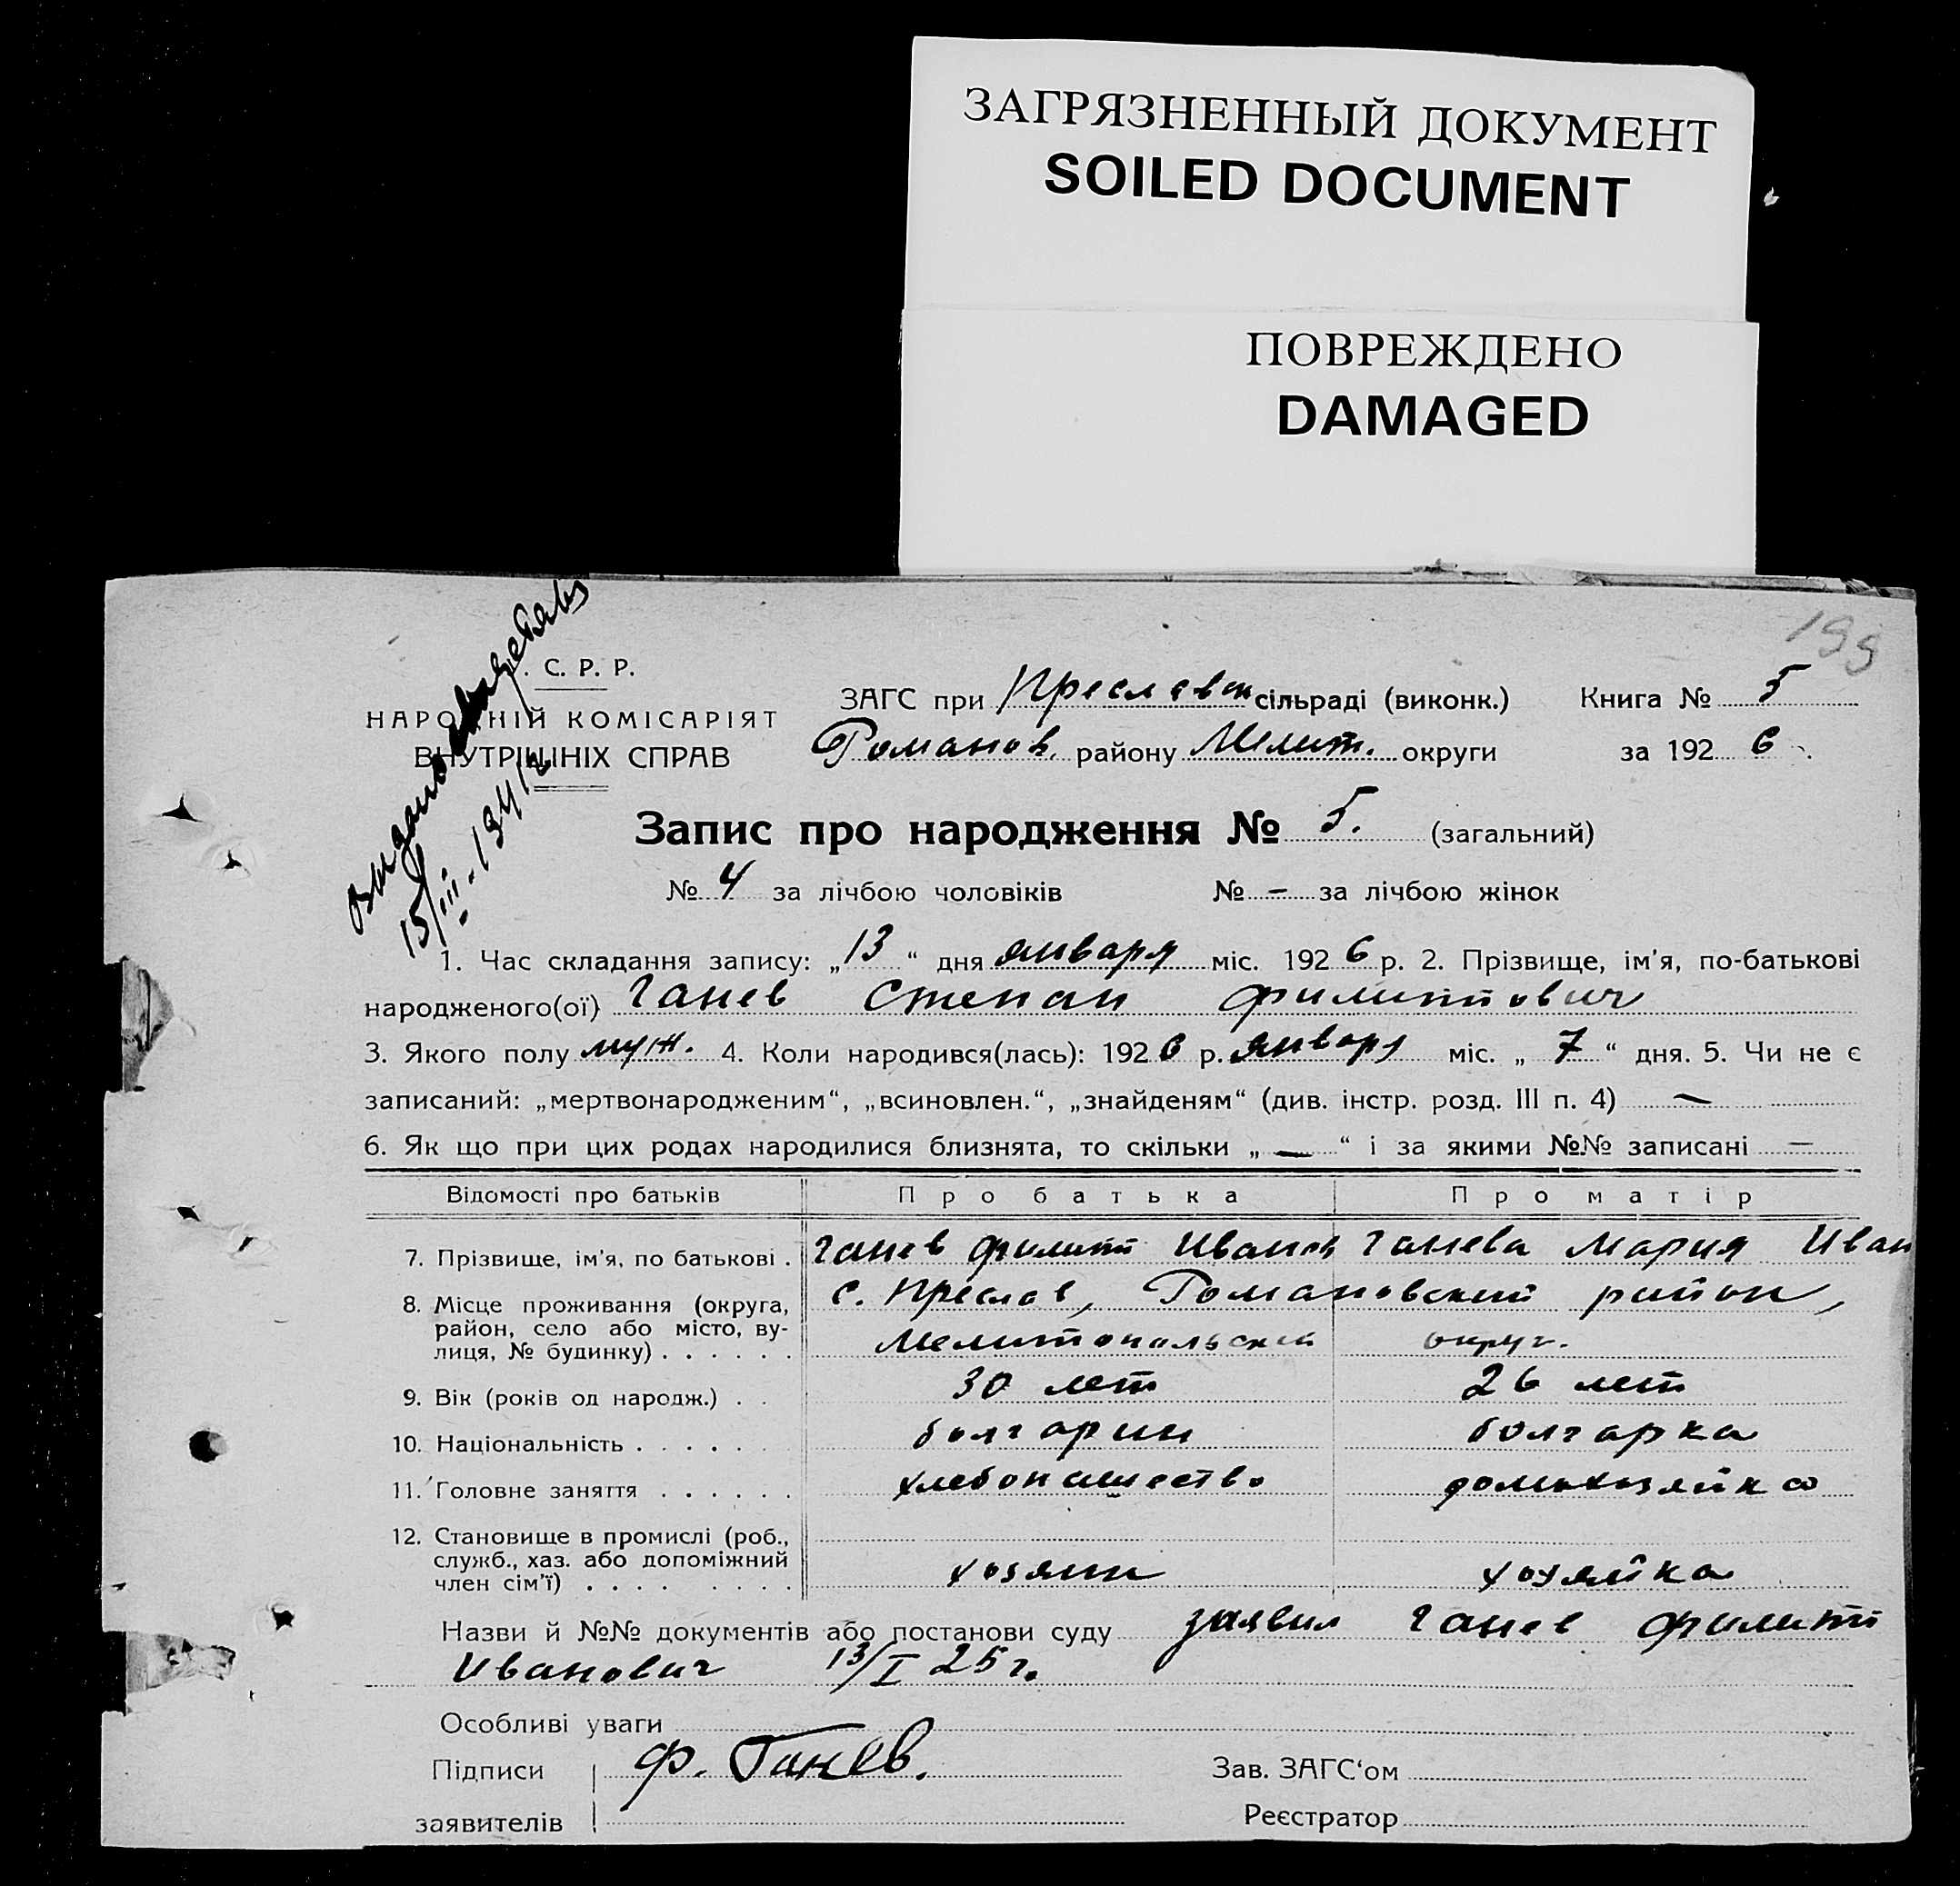 ЗАГРЯЗНЕННЫЙ ДОКУМЕНТ
SOILED DOCUMENT
ПОВРЕЖДЕНО
DAMAGED
199
Выдано
15/III-1941г
. С. Р. Р.
НАРОДНІЙ КОМІСАРІЯТ
ВНУТРІШНІХ СПРАВ
ЗАГС при Преславск сільраді (виконк.) Книга № 5
Романов. району Мелит. округи за 1926
Запис про народження № 5. (загальний)
№ 4 за лічбою чоловіків № – за лічбою жінок
1. Час складання запису: „13“ дня января міс. 1926 р. 2. Прізвище, ім'я, по-батькові
народженого(ої) Ганев Степан Филиппович
3. Якого полу муж. 4. Коли народився(лась): 1926 р. январ міс. „7“ дня. 5. Чи не є
записаний: „мертвонародженим“, „всиновлен.“, „знайденям“ (див. інстр. розд. III п. 4) —
6. Як що при цих родах народилися близнята, то скільки „—“ і за якими №№ записані —
Відомості про батьків Про батька Про матір
7. Прізвище, ім'я, по батькові . Ганев Филипп Иванов Ганева Мария Иван
8. Місце проживання (округа, с. Преслав, Романовский район,
район, село або місто, ву-
лиця, № будинку) . . . . . . Мелитопольский округ.
9. Вік (років од народж.) . . 30 лет 26 лет
10. Національність . . . . . . болгарин болгарка
11. Головне заняття . . . . . . хлебопашество домохозяйка
12. Становище в промислі (роб.,
служб., хаз. або допоміжний
член сім'ї) . . . . . . . . хозяин хозяйка
Назви й №№ документів або постанови суду заявил Ганев Филипп
Иванович 13/I 25г.
Особливі уваги
Підписи Ф. Ганев. Зав. ЗАГС'ом
заявителів Реєстратор